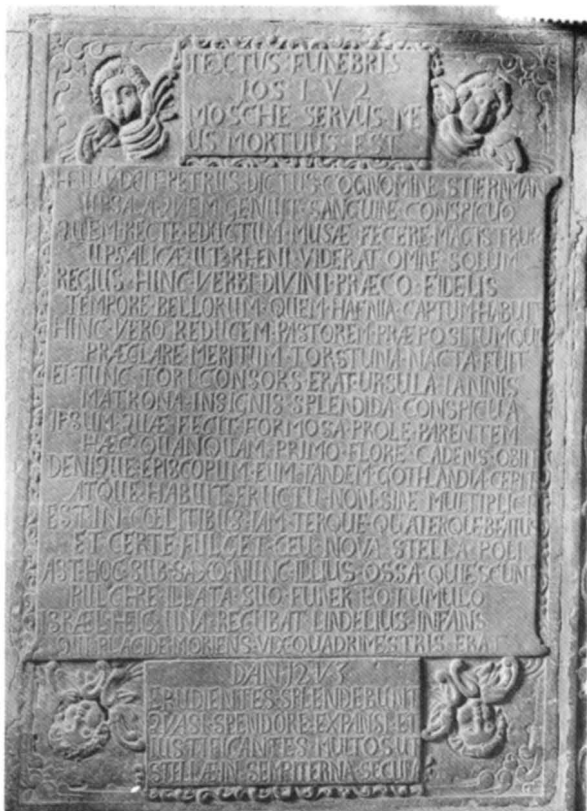 TEXTUS·FUNEBRIS
JOS I V 2
MOSCHE SERVUS ME
US MORTUUS EST
PETRUS·DICTUS·COGNOMINE·STIERNMAN
UPSALA·QUEM·GENUIT·SANGUINE·CONSPICUO
QUEM·RECTE·EDUCTUM·MUSÆ·FECERE·MAGISTRUM
UPSALICÆ·UT·RHENI·VIDERAT·OMNE·SOLUM
REGIUS·HINC·VERBI·DIVINI·PRÆCO·FIDELIS
TEMPORE·BELLORUM·QUEM·HAFNIA·CAPTUM·HABUIT
HINC·VERO·REDUCEM·PASTOREM·PRÆPOSITUMQUE
PRÆCLARE·MERITUM·TORSTUNA·NACTA·FUIT
ET·TUNC·TORI·CONSORS·ERAT·URSULA·IANNIS
MATRONA·INSIGNIS·SPLENDIDA·CONSPICUA
IPSUM·QUÆ·FECIT·FORMOSA·PROLE·PARENTEM
HÆC·QUANQUAM·PRIMO·FLORE·CADENS·OBIIT
DENIQUE·EPISCOPUM·EUM·TANDEM·GOTHLANDIA·CEPIT
ATQUE·HABUIT·FRUCTU·NON·SINE·MULTIPLICI
EST·IN·COELITIBUS·IAM·TERQUE·QUATERQUE·BEATUS
ET·CERTE·FULGET·CEU·NOVA·STELLA·POLI
AST·HOC·SUB·SAXO·NUNC·ILLIUS·OSSA·QUIESCUNT
PULCHRE·ILLATA·SUO·FUNERE·TUMULO
ISRAEL·HIC·UNA·RECUBAT·LINDELIUS·INFANS
QUI·PLACIDE·MORIENS·VIX·QUADRIMESTRIS·ERAT
DAN·12·V·3
ERUDIENTES·SPLENDEBUNT
QUASI·SPENDORE·EXPANSI·ET
IUSTIFICANTES·MULTOS·UT
STELLÆ·IN·SEMPITERNA·SECULA